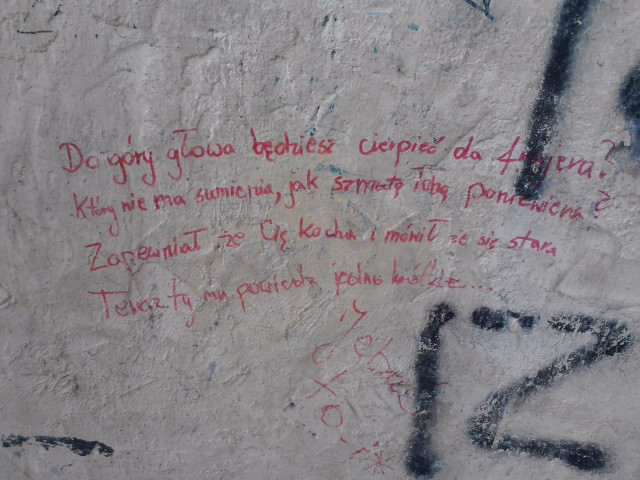 Do góry głowa będziesz cierpieć dla frajera?
Który nie ma sumienia, jak szmatą tobą poniewiera?
Zapewniał że Cię kocha i mówił że się stara
Teraz ty mu powiedz jedno krótkie...